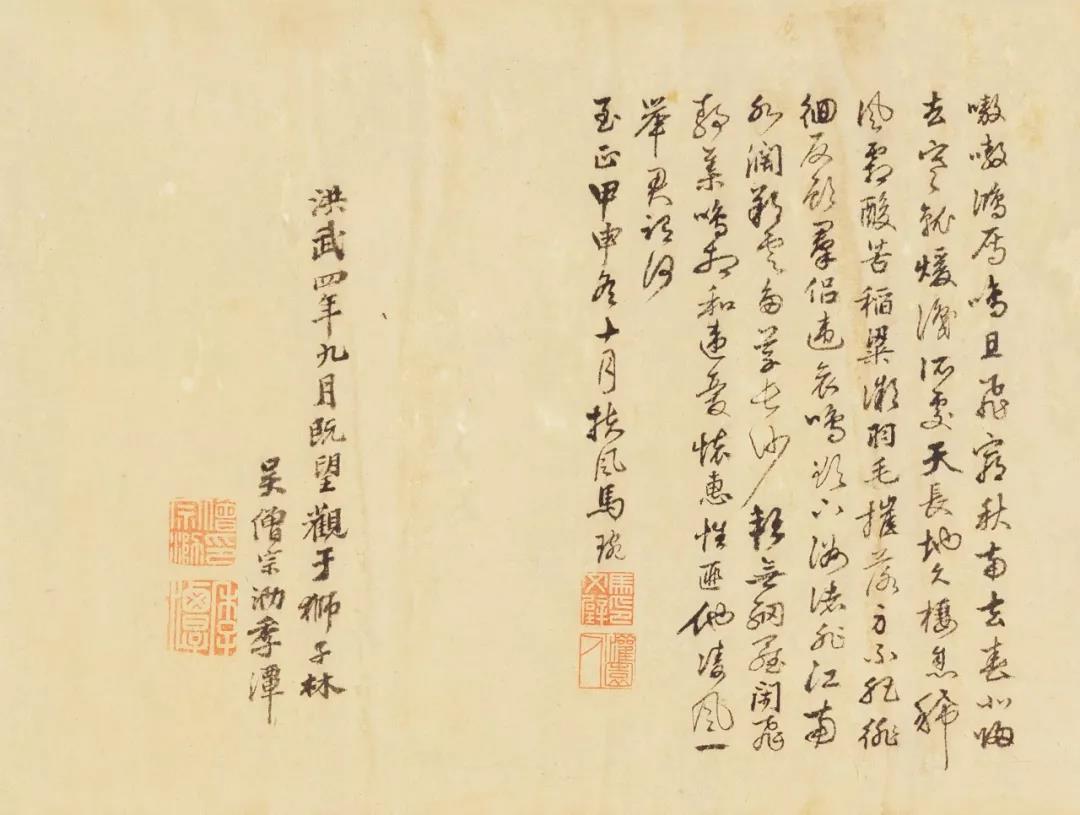 嗷嗷鴻鴈鳴且飛窮秋南去春北歸
去寒就煖識所處天長地久棲息稀
風霜酸苦稻粱微羽毛摧落身不肥徘
徊反顧羣侶違哀鳴欲下洲渚非江南
水闊朔雲多草長沙軟無網羅閒飛
靜集鳴相和違憂懷惠性匪他凌風一
舉君謂何
至正甲申冬十月扶風馬琬
灌園人
洪武四年九月既望觀于獅子林
吳僧宗泐季潭